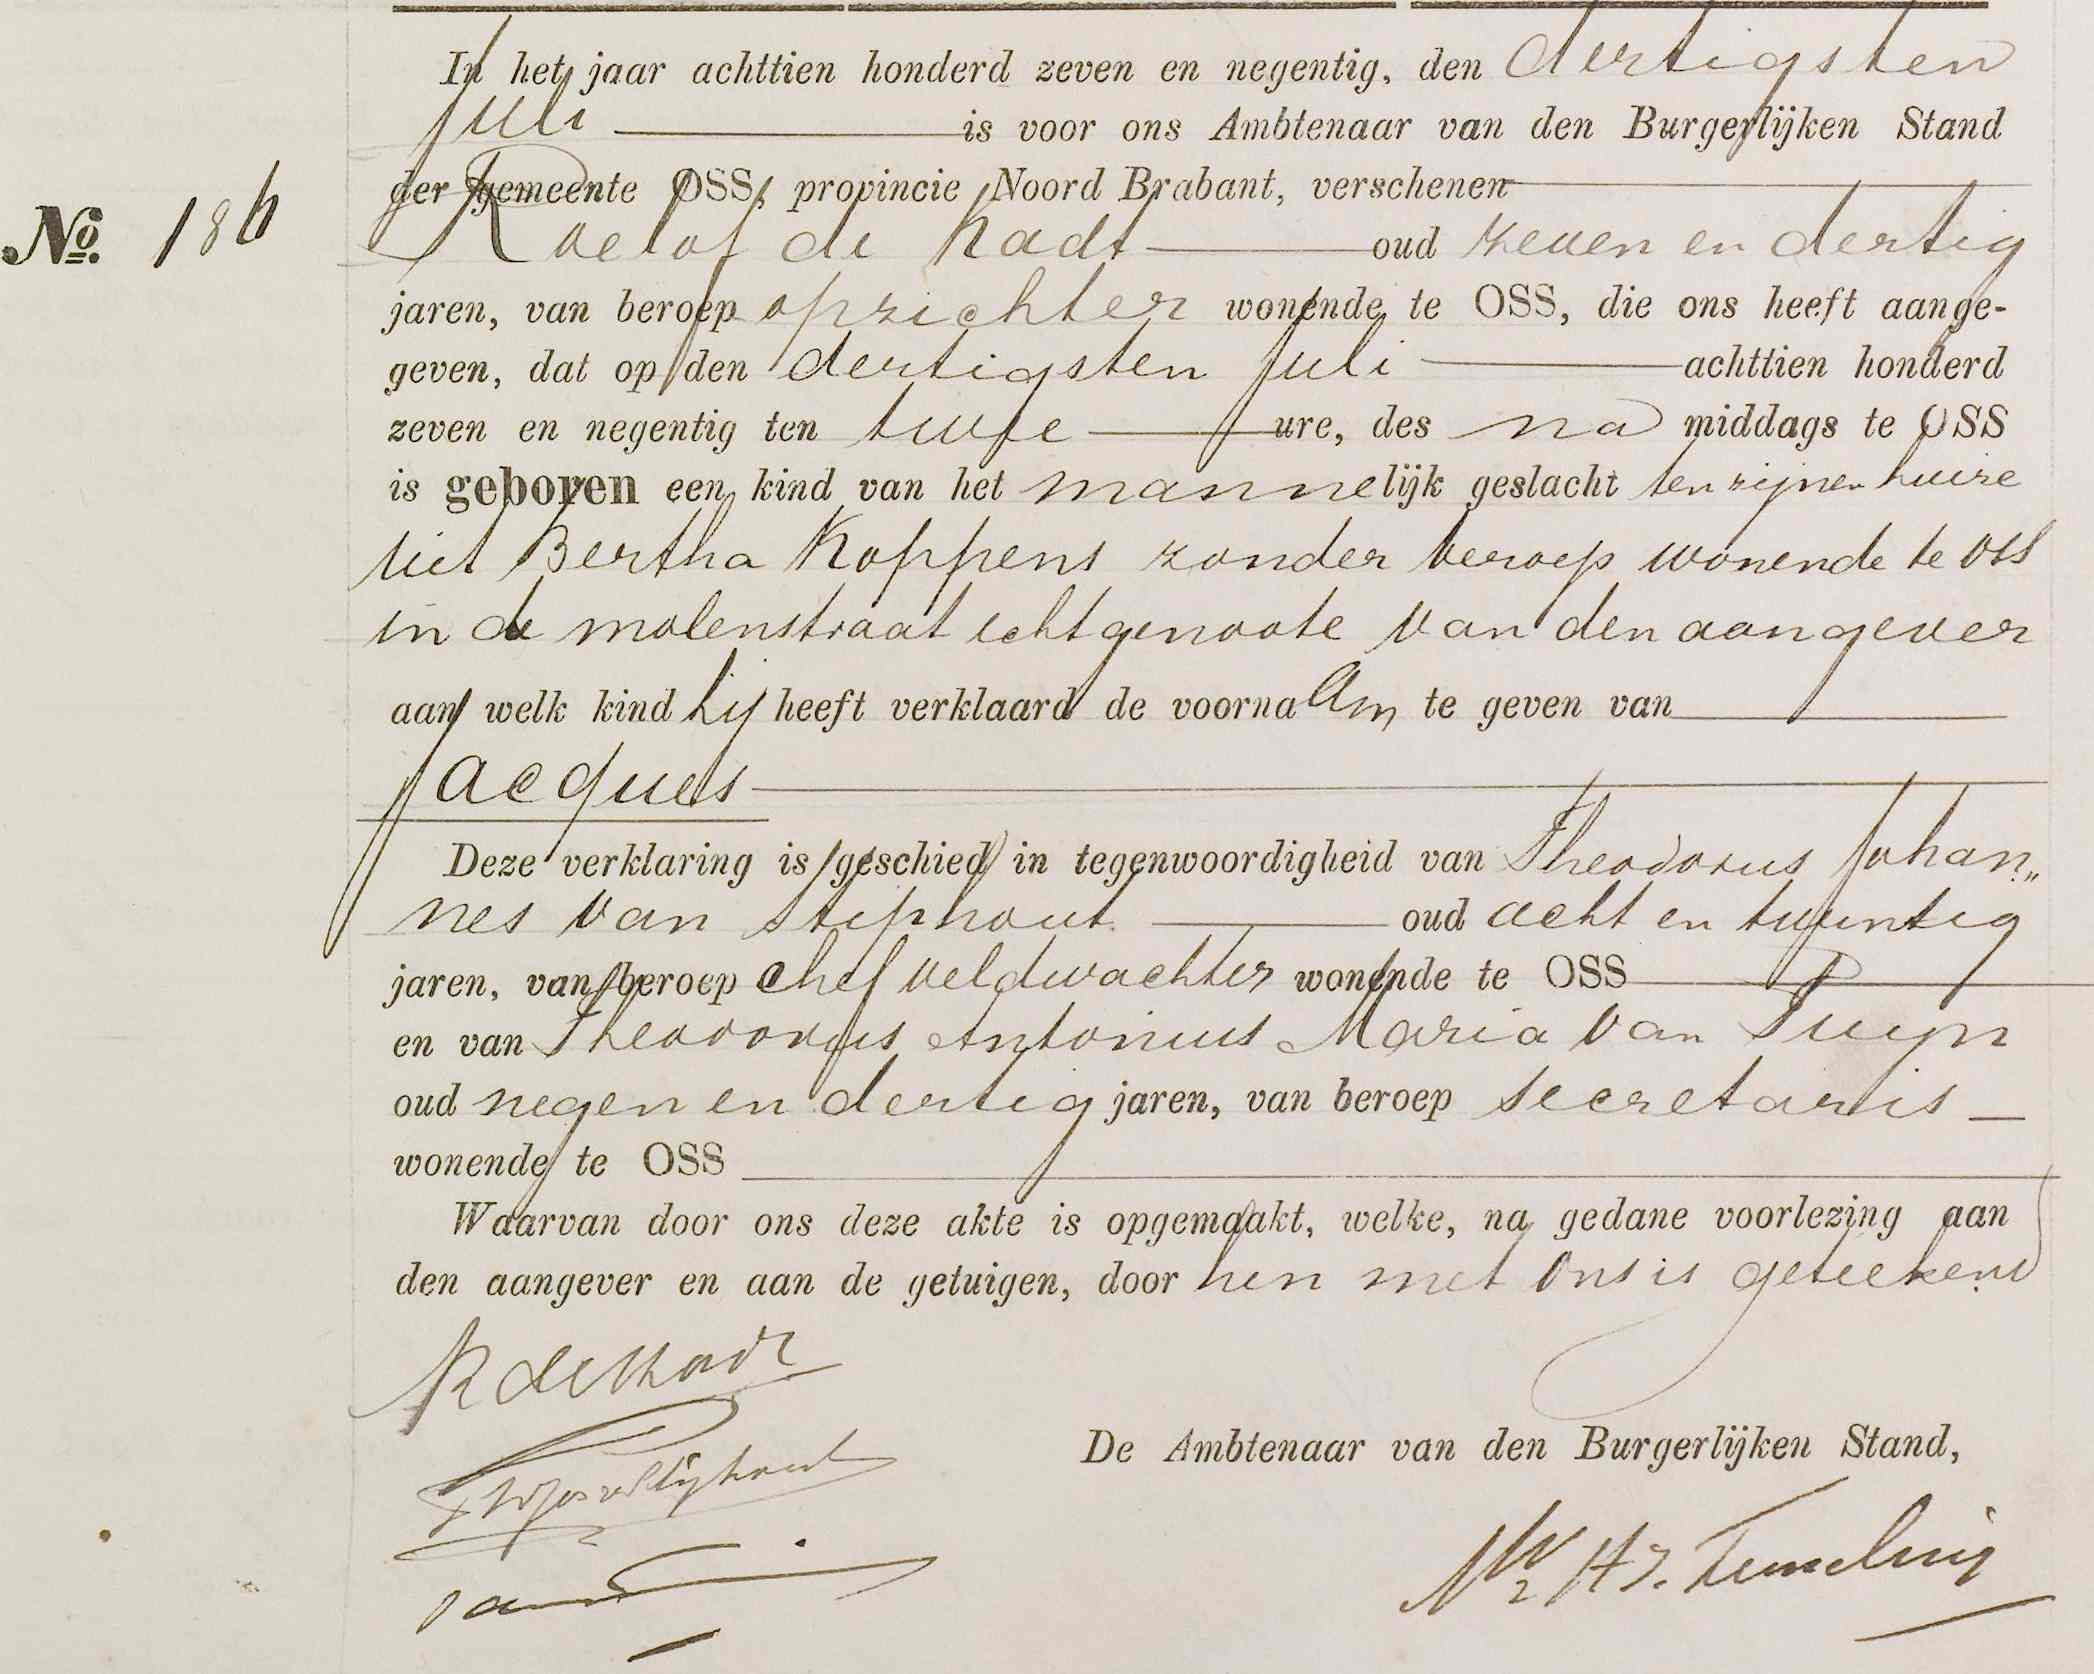 In het jaar achttien honderd zeven en negentig, den dertigsten
Juli is voor ons Ambtenaar van den Burgerlijken Stand
der gemeente OSS, provincie Noord Brabant, verschenen
No. 186
Roelof de Kadt oud zeven en dertig
jaren, van beroep opzichter wonende te OSS, die ons heeft aange-
geven, dat op den dertigsten Juli achttien honderd
zeven en negentig ten twee ure, des na middags te OSS
is geboren een kind van het mannelijk geslacht ten zijnen huize
uit Bertha Koppens zonder beroep wonende te Oss
in de molenstraat echtgenoote van den aangever
aan welk kind hij heeft verklaard de voornaam te geven van
Jacques
Deze verklaring is geschied in tegenwoordigheid van Theodorus Johan„
nes van Stiphout oud acht en twintig
jaren, van beroep chef veldwachter wonende te OSS
en van Theodorus Antonius Maria van
oud negen en dertig jaren, van beroep secretaris
wonende te OSS
Waarvan door ons deze akte is opgemaakt, welke, na gedane voorlezing aan
den aangever en aan de getuigen, door hen met ons is geteekend
R de Kadt
De Ambtenaar van den Burgerlijken Stand,